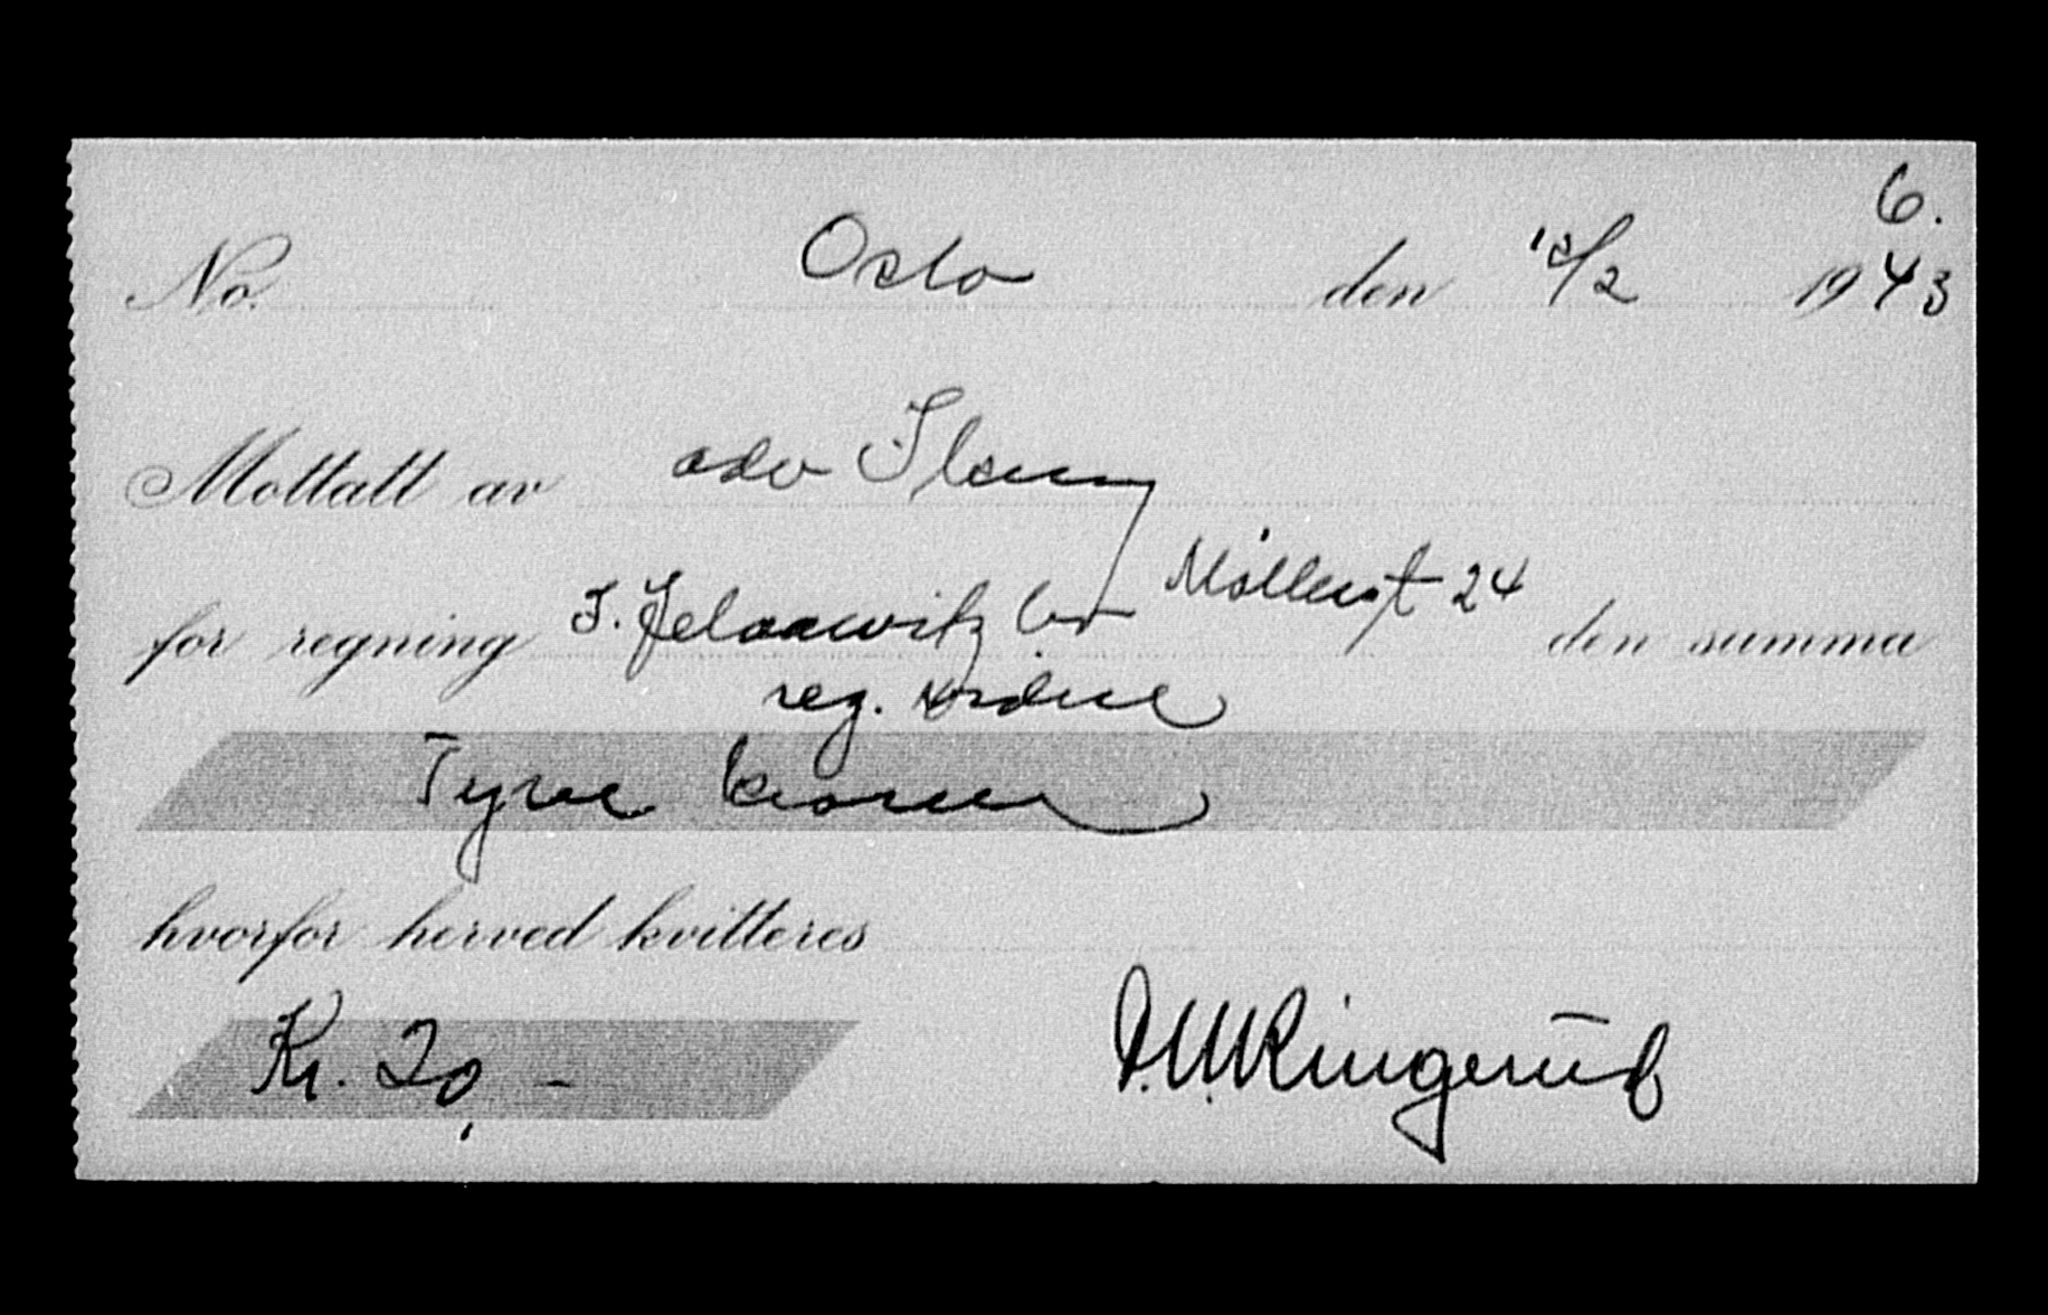 6.
No. Oslo den 12/2 1943
Mottatt av adv
for regning J. Jelaawitz bo Møllergt 24 den summa
reg.
Tyve kroner
hvorfor herved kvitteres
Kr. 20,- Ringerud